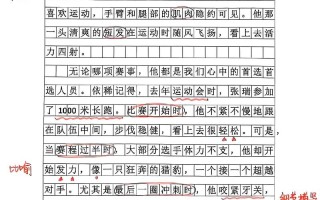 喜欢运动，手臂和腿部的肌肉隐约可见。他那
一头清爽的短发在运动时随风飞扬，看上去活
力四射。
无论哪项赛事，他都是我们心中的首选首
选人员。依稀记得，去年运动会时，张瑞参加
了1000米长跑，比赛开始时，他不紧不慢地跟
在队伍中间，步伐稳健，看上去很轻松。可是，
当赛程过半时，大部分选手体力不支，他却开
始发力，像一只狂奔的猎豹，一个接一个超越
比喻
对手。尤其是最后一圈冲刺时，他咬紧牙关，